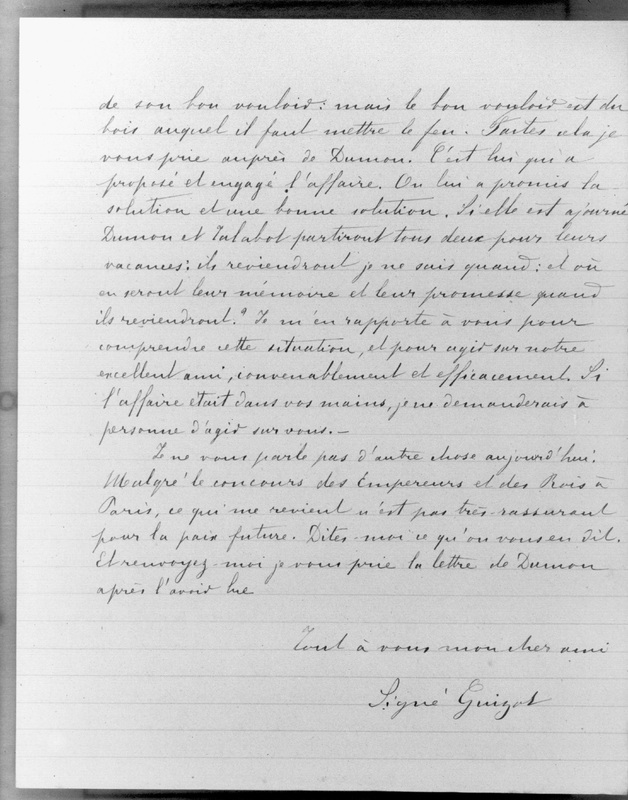 de son bon vouloir : mais le bon vouloir est du
bois auquel il faut mettre le feu. Faites cela je
vous prie auprès de Dumon. C'est lui qui a
proposé et engagé l'affaire. On lui a promis la
solution et une bonne solution. Si elle est ajourné
Dumon et Talabot partiront tous deux pour leurs
vacances : ils reviendront je ne sais quand : et où
en seront leur mémoire et leur promesse quand
ils reviendront ? Je m'en rapporte à vous pour
comprendre cette situation, et pour agir sur notre
excellent ami, convenablement et efficacement. Si
l'affaire était dans vos mains, je ne demanderais à
personne d'agir sur vous. —
Je ne vous parle pas d'autre chose aujourd'hui.
Malgré le concours des Empereurs et des Rois à
Paris, ce qui me revient n'est pas très-rassurant
pour la paix future. Dites-moi ce qu'on vous en dit.
Et renvoyez-moi je vous prie la lettre de Dumon
après l'avoir lue
Tout à vous mon cher ami
Signé Guizot